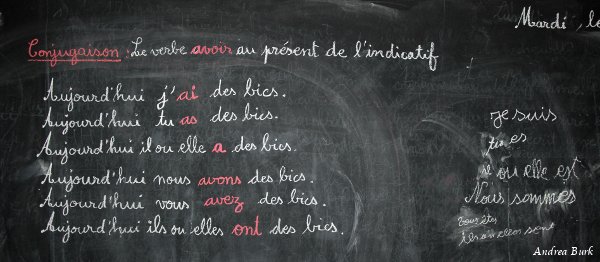 Mardi, le
Conjugaison : Le verbe avoir au présent de l'indicatif
Aujourd'hui j'ai des bics.
Aujourd'hui tu as des bics.
Aujourd'hui il ou elle a des bics.
Aujourd'hui nous avons des bics.
Aujourd'hui vous avez des bics.
Aujourd'hui ils ou elles ont des bics.
je suis
tu es
il ou elle est
Nous sommes
Vous êtes
ils ou elles sont
Andrea Burk